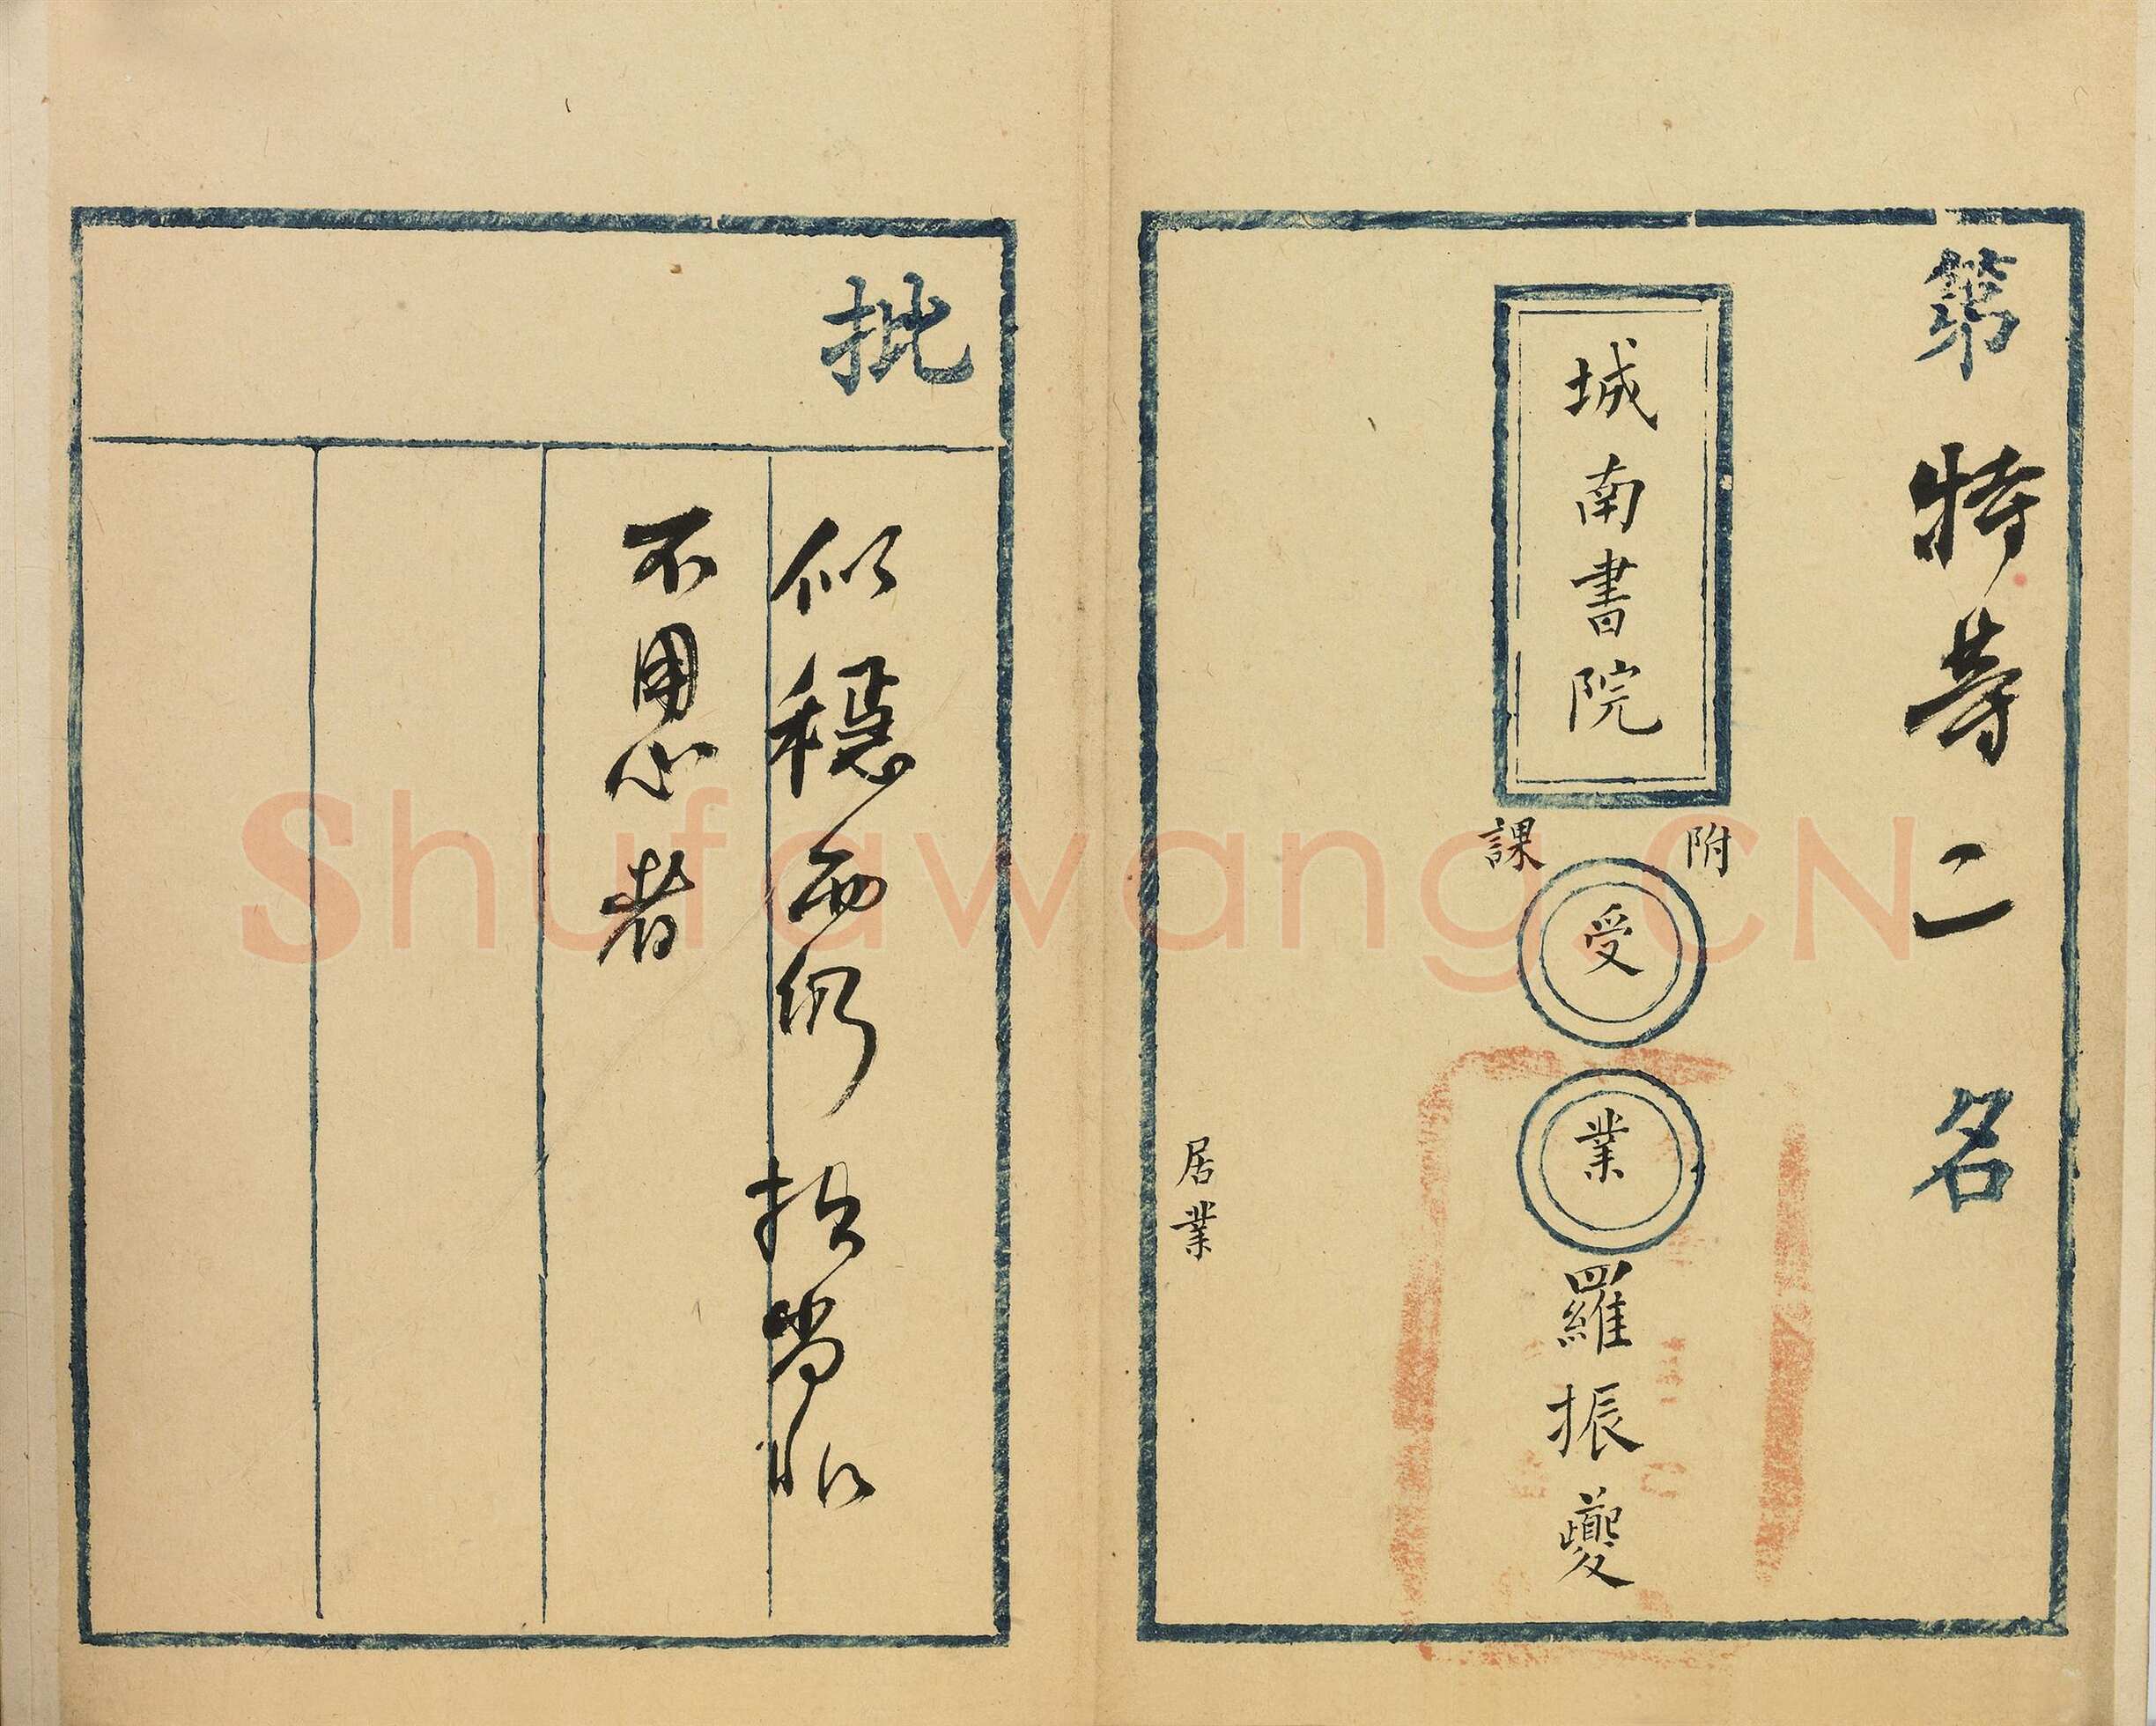 第特等二名
城南書院
附課
受業羅振夔
居業
批
似穩而仍
不用心者
Shufawang.CN